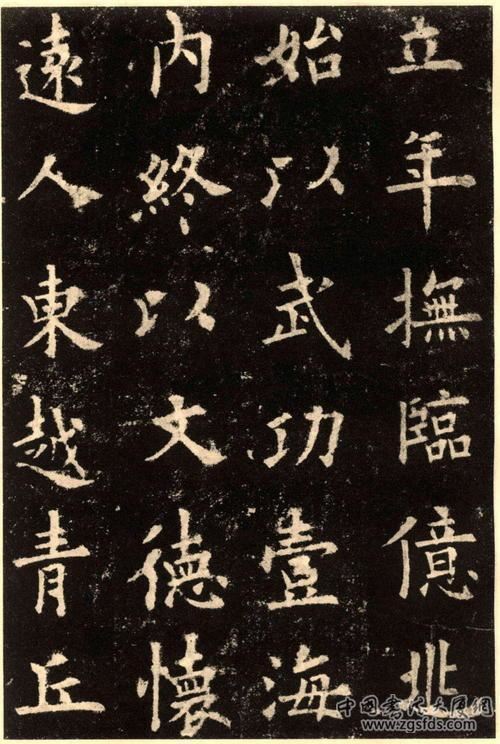 立年撫臨億兆
始以武功壹海
内終以文德懷
遠人東越青丘
中国书法大风网
www.zgsfds.com